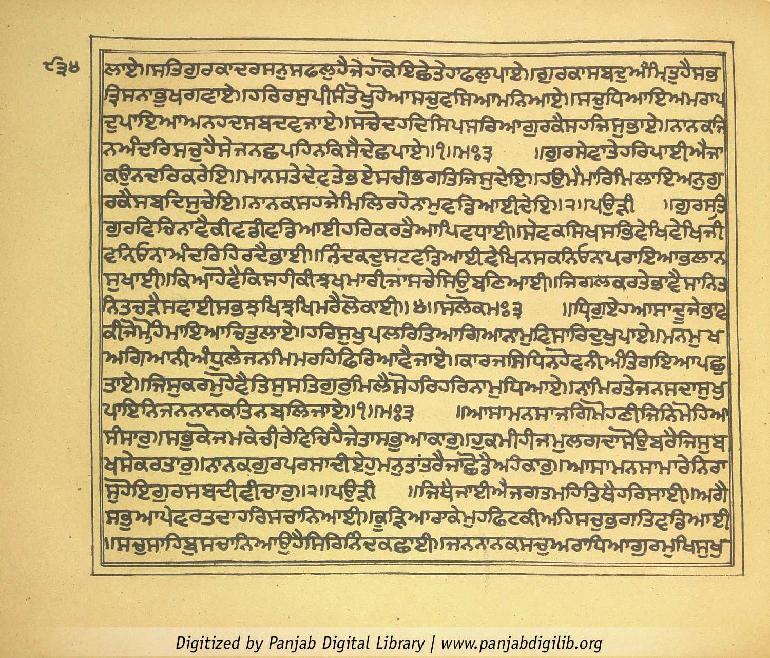 ੮੩੪
ਲਾਏ॥ਸਤਿਗੁਰਕਾਦਰਸਨੁਸਫਲੁਹੈਜੇਹਾਕੋਇਛੇਤੇਹਾਫਲੁਪਾਏ॥ਗੁਰਕਾਸਬਦੁਅੰਮ੍ਰਿਤੁਹੈਸਭ
ਤ੍ਰਿਸਨਾਭੁਖਗਵਾਏ॥ਹਰਿਰਸੁਪੀਸੰਤੋਖੁਹੋਆਸਚੁਵਸਿਆਮਨਿਆਏ॥ਸਚੁਧਿਆਇਅਮਰਾਪ
ਦੁਪਾਇਆਅਨਹਦਸਬਦਵਜਾਏ॥ਸਚੋਦਹਦਿਸਿਪਸਰਿਆਗੁਰਕੈਸਹਜਿਸੁਭਾਏ॥ਨਾਨਕਜਿ
ਨਅੰਦਰਿਸਚੁਹੈਸੇਜਨਛਪਹਿਨਕਿਸੈਦੇਛਪਾਏ॥੧॥ਮਃ੩ ॥ਗੁਰਸੇਵਾਤੇਹਰਿਪਾਈਐਜਾ
ਕਉਨਦਰਿਕਰੇਇ॥ਮਾਨਸਤੇਦੇਵਤੇਭਏਸਚੀਭਗਤਿਜਿਸੁਦੇਇ॥ਹਉਮੈਮਾਰਿਮਿਲਾਇਅਨੁਗੁ
ਰਕੈਸਬਦਿਸੁਚੇਇ॥ਨਾਨਕਸਹਜੇਮਿਲਿਰਹੇਨਾਮੁਵਡਿਆਈਦੇਇ॥੨॥ਪਉੜੀ ॥ਗੁਰਸਤਿ
ਗੁਰਵਿਚਿਨਾਵੈਕੀਵਡੀਵਡਿਆਈਹਰਿਕਰਤੈਆਪਿਵਧਾਈ॥ਸੇਵਕਸਿਖਸਭਿਵੇਖਿਵੇਖਿਜੀ
ਵਨਿਓਨਾਅੰਦਰਿਹਿਰਦੈਭਾਈ॥ਨਿੰਦਕਦੁਸਟਵਡਿਆਈਵੇਖਿਨਸਕਨਿਓਨਾਪਰਾਇਆਭਲਾਨ
ਸੁਖਾਈ॥ਕਿਆਹੋਵੈਕਿਸਹੀਕੀਝਖਮਾਰੀਜਾਸਚੇਸਿਉਬਣਿਆਈ॥ਜਿਗਲਕਰਤੇਭਾਵੈਸਾਨਿਤ
ਨਿਤਚੜੈਸਵਾਈਸਭਝਖਿਝਖਿਮਰੈਲੋਕਾਈ॥੪॥ਸਲੋਕਮਃ੩ ॥ਧ੍ਰਿਗੁਏਹਆਸਾਦੂਜੇਭਾਵ
ਕੀਜੋਮੋਹਿਮਾਇਆਚਿਤੁਲਾਏ॥ਹਰਿਸੁਖੁਪਲਰਿਤਿਆਗਿਆਨਾਮੁਵਿਸਾਰਿਦੁਖੁਪਾਏ॥ਮਨਮੁਖ
ਅਗਿਆਨੀਅੰਧੁਲੇਜਨਮਿਮਰਹਿਫਿਰਿਆਵੈਜਾਏ॥ਕਾਰਜਸਿਧਿਨਹੋਵਨੀਅੰਤਿਗਇਆਪਛੁ
ਤਾਏ॥ਜਿਸੁਕਰਮੁਹੋਵੈਤਿਸੁਸਤਿਗੁਰੁਮਿਲੈਸੋਹਰਿਹਰਿਨਾਮੁਧਿਆਏ॥ਨਾਮਿਰਤੇਜਨਸਦਾਸੁਖੁ
ਪਾਇਨਿਜਨਨਾਨਕਤਿਨਬਲਿਜਾਏ॥੧॥ਮਃ੩ ॥ਆਸਾਮਨਸਾਜਗਿਮੋਹਣੀਜਿਨਿਮੋਹਿਆ
ਸੰਸਾਰੁ॥ਸਭੁਕੋਜਮਕੇਚੀਰੇਵਿਚਿਹੈਜੇਤਾਸਭੁਆਕਾਰੁ॥ਹੁਕਮੀਹੀਜਮੁਲਗਦਾਸੋਉਬਰੈਜਿਸੁਬ
ਖਸੇਕਰਤਾਰੁ॥ਨਾਨਕਗੁਰਪਰਸਾਦੀਏਹੁਮਨੁਤਾਂਤਰੈਜਾਛੋਡੈਅਹੰਕਾਰੁ॥ਆਸਾਮਨਸਾਮਾਰੇਨਿਰਾ
ਸੁਹੋਇਗੁਰਸਬਦੀਵੀਚਾਰੁ॥੨॥ਪਉੜੀ ॥ਜਿਥੈਜਾਈਐਜਗਤਮਹਿਤਿਥੈਹਰਿਸਾਈ॥ਅਗੈ
ਸਭੁਆਪੇਵਰਤਦਾਹਰਿਸਚਾਨਿਆਈ॥ਕੂੜਿਆਰਾਕੇਮੁਹਫਿਟਕੀਅਹਿਸਚੁਭਗਤਿਵਡਿਆਈ
॥ਸਚੁਸਾਹਿਬੁਸਚਾਨਿਆਉਹੈਸਿਰਿਨਿੰਦਕਛਾਈ॥ਜਨਨਾਨਕਸਚੁਅਰਾਧਿਆਗੁਰਮੁਖਿਸੁਖੁ
Digitized by Panjab Digital Library | www.panjabdigilib.org